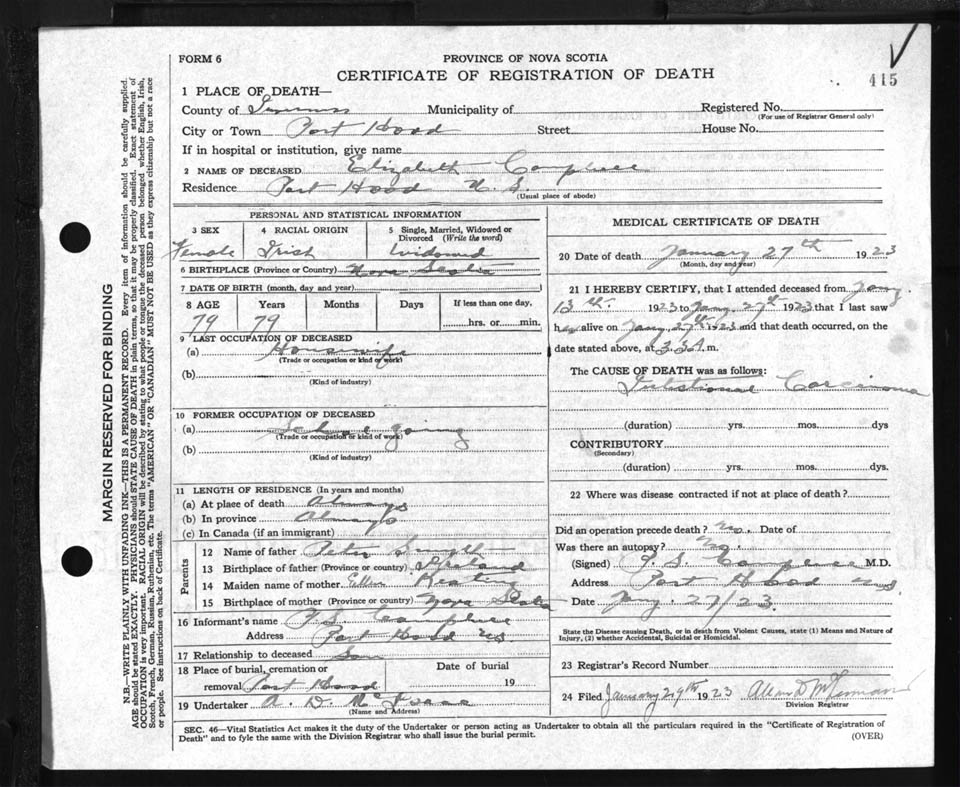 415
FORM 6
PROVINCE OF NOVA SCOTIA
CERTIFICATE OF REGISTRATION OF DEATH
MARGIN RESERVED FOR BINDING
N.B.—WRITE PLAINLY WITH UNFADING INK—THIS IS A PERMANENT RECORD. Every item of information should be carefully supplied.
AGE should be stated EXACTLY. PHYSICIANS should STATE CAUSE OF DEATH in plain terms, so that it may be properly classified. Exact statement of
OCCUPATION is very important. RACIAL ORIGIN will be described by stating to what people or tongue the deceased person belonged whether English, Irish,
Scotch, French, German, Russian, Ruthenian, etc. The terms "AMERICAN" OR "CANADIAN" MUST NOT BE USED as they express citizenship but not a race
or people. See instructions on back of Certificate.
1 PLACE OF DEATH—
County of Inverness Municipality of Registered No.
(For use of Registrar General only)
City or Town Port Hood Street House No.
If in hospital or institution, give name
2 NAME OF DECEASED Elizabeth Campbell
Residence Port Hood N. S.
(Usual place of abode)
PERSONAL AND STATISTICAL INFORMATION
3 SEX 4 RACIAL ORIGIN 5 Single, Married, Widowed or
Divorced (Write the word)
Female Irish Widowed
6 BIRTHPLACE (Province or Country) Nova Scotia
7 DATE OF BIRTH (month, day and year)
8 AGE Years Months Days If less than one day,
79 79 hrs. or min.
9 LAST OCCUPATION OF DECEASED
(a) Housewife
(Trade or occupation or kind of work)
(b)
(Kind of industry)
10 FORMER OCCUPATION OF DECEASED
(a) going
(Trade or occupation or kind of work)
(b)
(Kind of industry)
11 LENGTH OF RESIDENCE (In years and months)
(a) At place of death Always
(b) In province Always
(c) In Canada (if an immigrant)
Parents
12 Name of father Peter Smyth
13 Birthplace of father (Province or country) Ireland
14 Maiden name of mother Ellen Keating
15 Birthplace of mother (Province or country) Nova Scotia
16 Informant's name Campbell
Address Port Hood NS
17 Relationship to deceased Son
18 Place of burial, cremation or Date of burial
removal Port Hood 19
19 Undertaker A. D. McIsaac
(Name and Address)
MEDICAL CERTIFICATE OF DEATH
20 Date of death January 27th 1923
(Month, day and year)
21 I HEREBY CERTIFY, that I attended deceased from Jany.
13th 1923 to Jany. 27th 1923 that I last saw
her alive on Jany 27th 1923 and that death occurred, on the
date stated above, at m.
The CAUSE OF DEATH was as follows:
Intestional Carcinoma
(duration) yrs. mos. dys
CONTRIBUTORY
(Secondary)
(duration) yrs. mos. dys.
22 Where was disease contracted if not at place of death?
Did an operation precede death? No. Date of
Was there an autopsy? No.
(Signed) Campbell M.D.
Address Port Hood NS
Date Jany. 27/23.
State the Disease causing Death, or in death from Violent Causes, state (1) Means and Nature of
Injury, (2) whether Accidental, Suicidal or Homicidal.
23 Registrar's Record Number
24 Filed January 29th 1923
Division Registrar
SEC. 46—Vital Statistics Act makes it the duty of the Undertaker or person acting as Undertaker to obtain all the particulars required in the "Certificate of Registration of
Death" and to fyle the same with the Division Registrar who shall issue the burial permit.
(OVER)